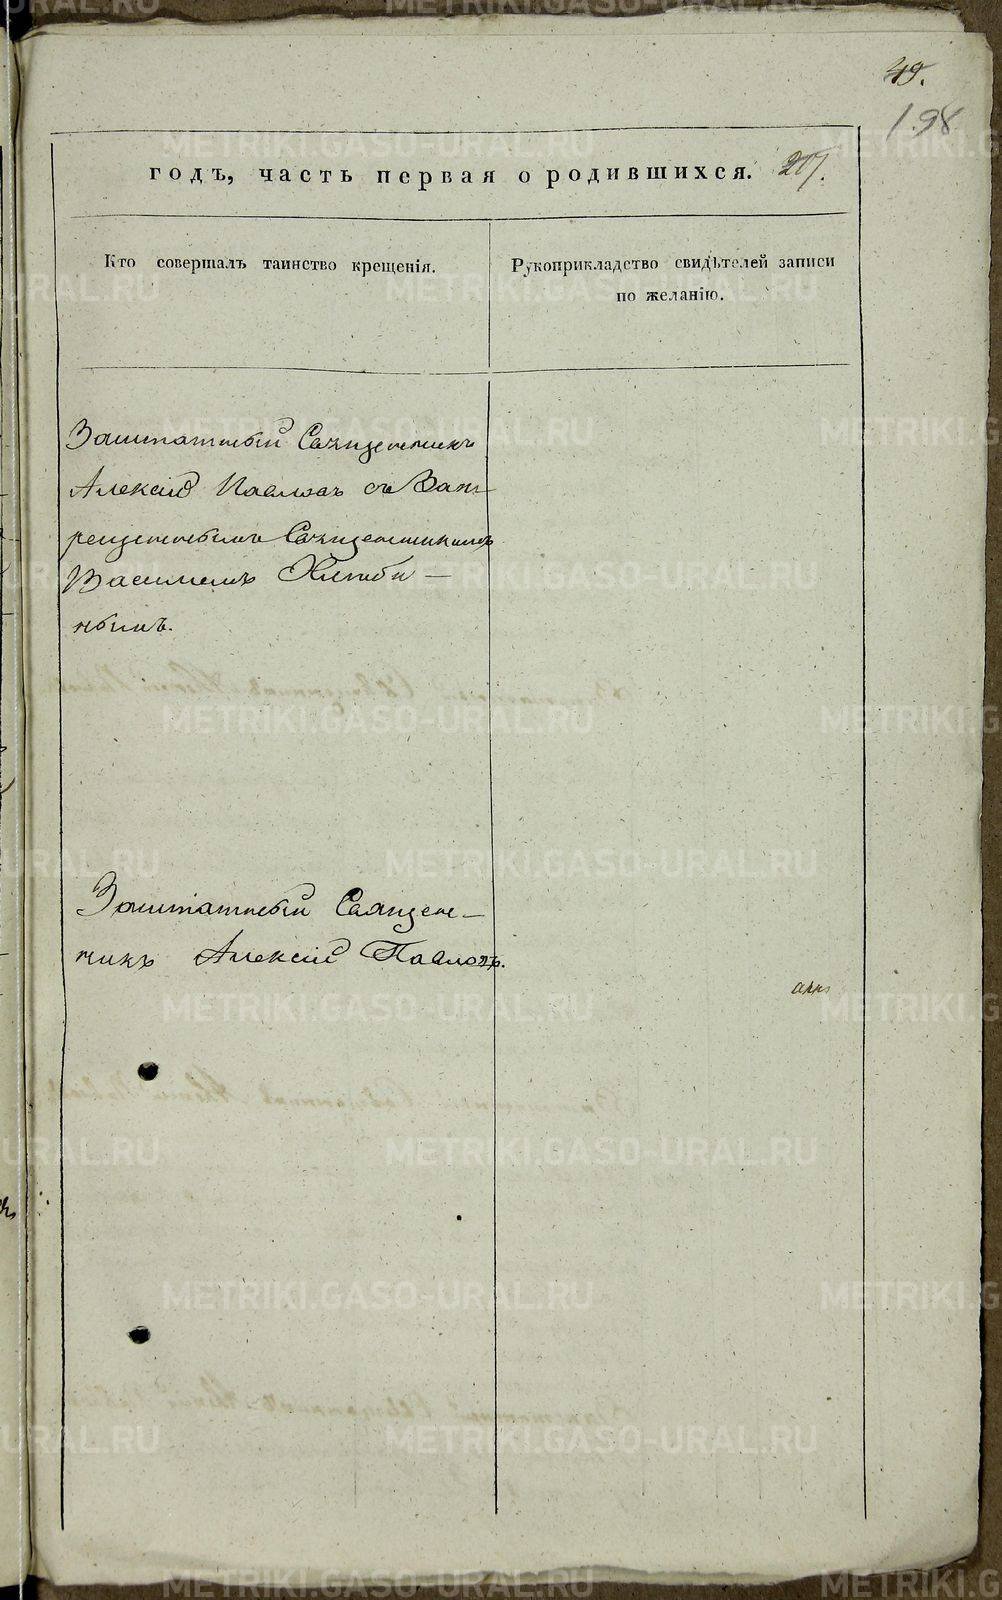 49.
198
годъ, часть первая о родившихся. 207.
Кто совершалъ таинство крещенія.
Рукоприкладство свидѣтелей записи
по желанію.
Заштатный Священникъ
Алексій Павловъ съ
Священникомъ
Василіемъ
нымъ.
Заштатный Священ—
никъ Алексій Павловъ.
METRIKI.GASO-URAL.RU